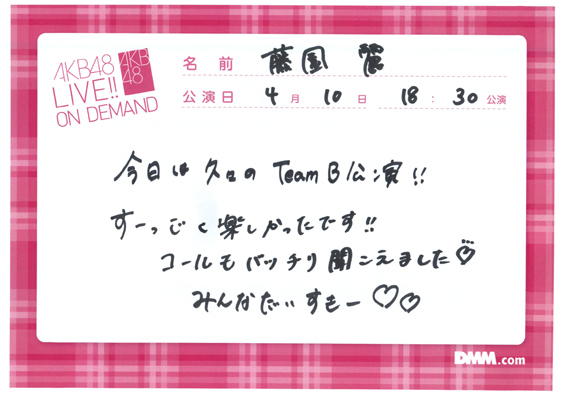 AKB48
LIVE!!
ON DEMAND
AKB
48
名前 藤園 麗
公演日 4月 10日 18:30公演
今日は久々のTeam B公演!!
すーっごく楽しかったです!!
コールもバッチリ聞こえました♡
みんなだいすきー♡♡
DMM.com